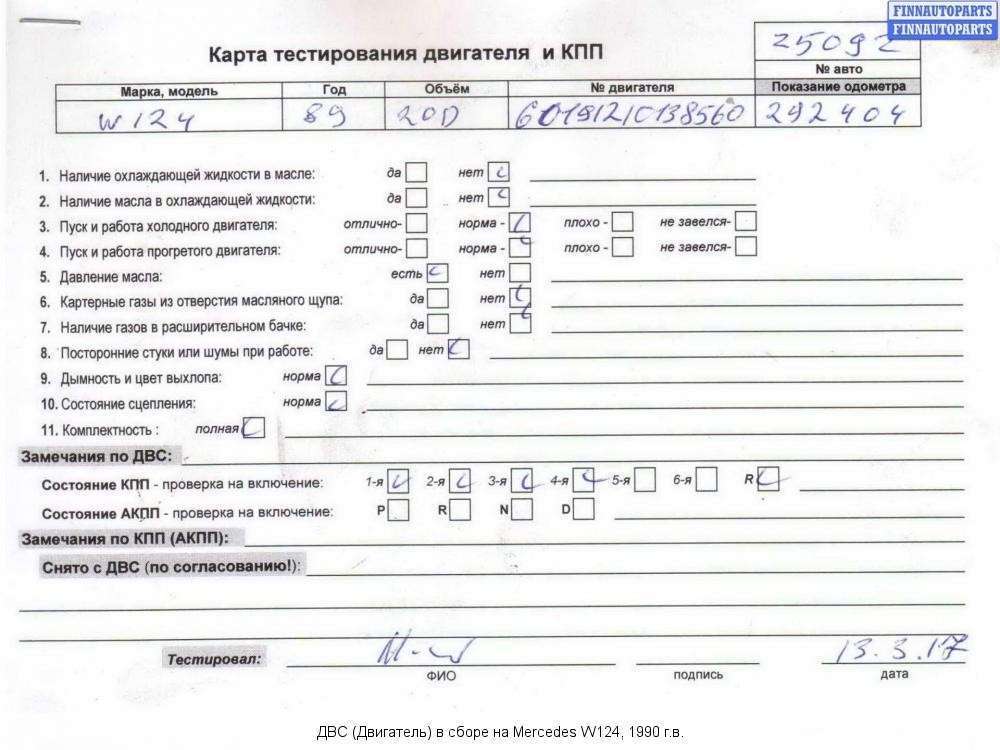 FINNAUTOPARTS
FINNAUTOPARTS
25092
Карта тестирования двигателя и КПП
№ авто
Марка, модель Год Объём № двигателя Показание одометра
W124 89 20D 60191210138560 292404
1. Наличие охлаждающей жидкости в масле: да нет
2. Наличие масла в охлаждающей жидкости: да нет
3. Пуск и работа холодного двигателя: отлично- норма - плохо - не завелся-
4. Пуск и работа прогретого двигателя: отлично- норма - плохо - не завелся-
5. Давление масла: есть нет
6. Картерные газы из отверстия масляного щупа: да нет
7. Наличие газов в расширительном бачке: да нет
8. Посторонние стуки или шумы при работе: да нет
9. Дымность и цвет выхлопа: норма
10. Состояние сцепления: норма
11. Комплектность : полная
Замечания по ДВС:
Состояние КПП - проверка на включение: 1-я 2-я 3-я 4-я 5-я 6-я R
Состояние АКПП - проверка на включение: P R N D
Замечания по КПП (АКПП):
Снято с ДВС (по согласованию!):
Тестировал: 13.3.17
ФИО подпись дата
ДВС (Двигатель) в сборе на Mercedes W124, 1990 г.в.